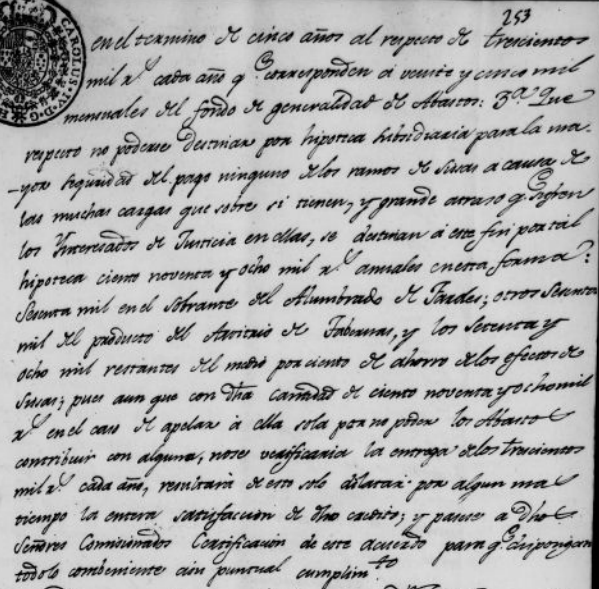 253
CAROLUS IV D. G.
en el termino de cinco años al respecto de trescientos
mil rs. cada año q.e corresponden á veinte y cinco mil
mensuales del fondo de generalidad de Abastos: 3.a Que
respecto no poderse destinar por hipoteca subsidiaria para la ma-
-yor seguridad del pago ninguno de los ramos de sisas a causa de
las muchas cargas que sobre si tienen, y grande atraso q.e sufren
los Interesados de Justicia en ellas, se destinan á este fin por tal
hipoteca ciento noventa y ocho mil rs. annales en esta forma:
Sesenta mil en el sobrante del Alumbrado de Faroles; otros Sesenta
mil del producto del Arvitrio de Tabernas, y los setenta y
ocho mil restantes del medio por ciento de ahorro de los efectos de
sisas; pues aun que con dha cantidad de ciento noventa y ocho mil
rs. en el caso de apelar á ella sola por no poder los Abastos
contribuir con alguna, no se verificaria la entrega de los trescientos
mil rs. cada año, resultaria de esto solo dilatar por algun mas
tiempo la entera satisfaccion de dho credito; y pasese a Dhos
Señores Comisionados Certificacion de este acuerdo para q.e dispongan
todo lo combeniente á su puntual cumplim.to